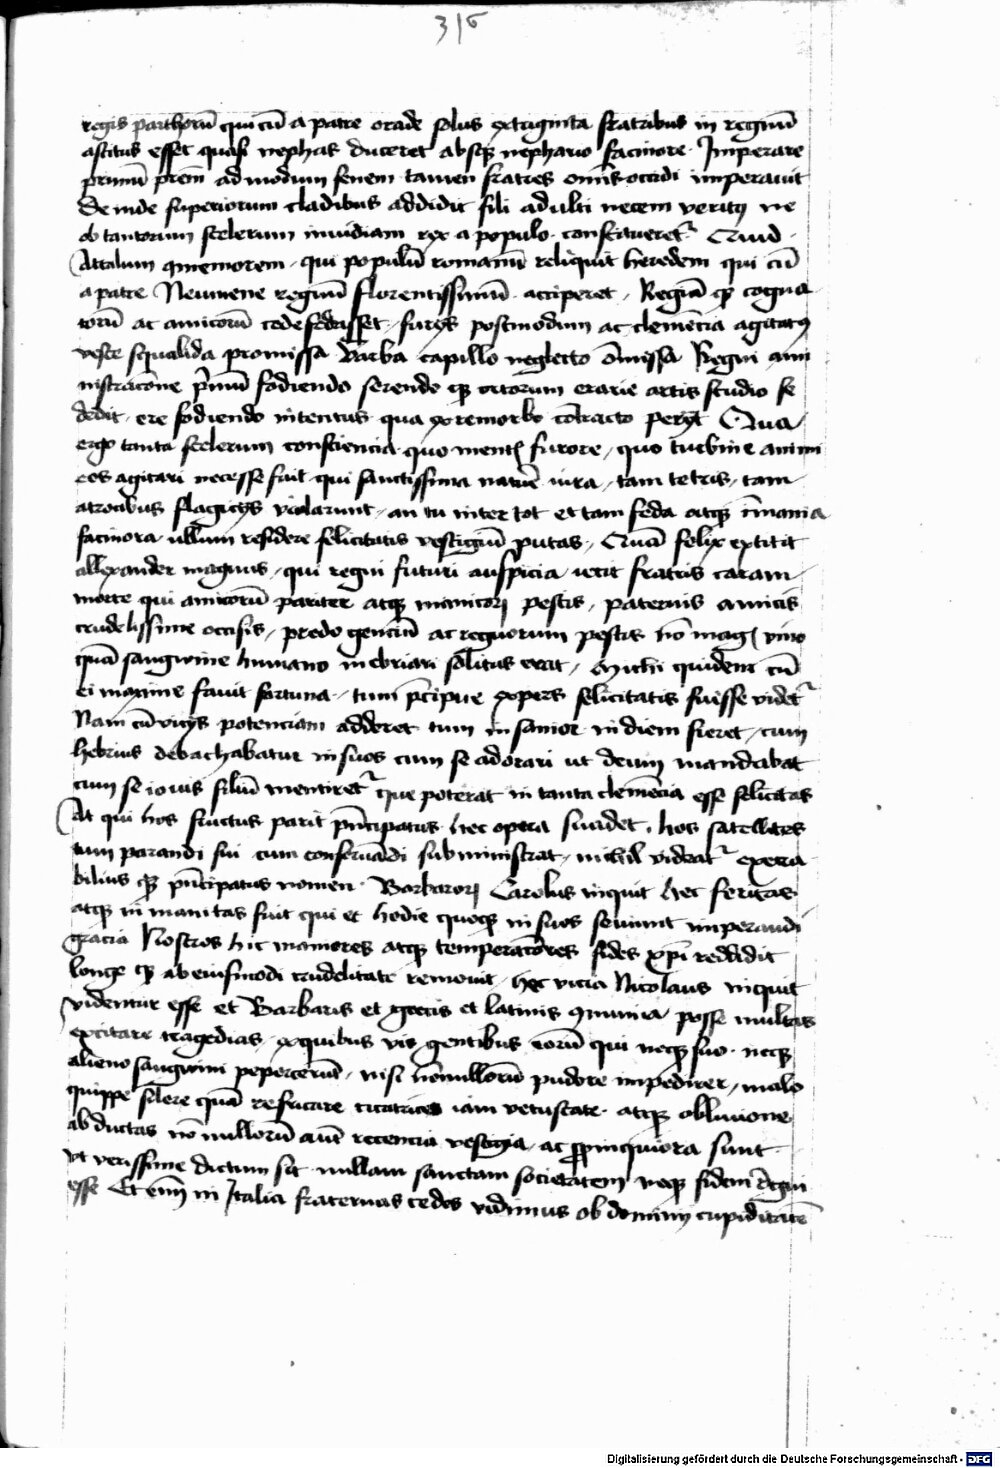 315
regis parthorū qui cū a patre orode solus ex triginta fratribus in regnū
ascitus esset quasi nephas duceret absqꝫ nephario facinore . Imperare
primū prēm admodum senem tamen fratres omīs occidi imperauit
Deinde superiorum cladibus addidit fili adulti necem veritꝰ ne
ob tantorum scelerum inuidiam rex a populo . constitueretᷣ . Quid .
Attalum qmemorem . qui populū romanum reliquit heredem qui cū
a patre Neumene regnū florentissimū . acciperet . Regiā qꝫ cogna
torū ac amicorū cede fedasset . furijs postmodum ac clemēcia agitatꝰ
veste squalida promissa barba capillo neglecto omissa Regni ami
nistracōne prīmū fodiendo serendo qꝫ ortorum erarie artis studio se
dedit . ere fodiendo intentus qua ex re morbo cōtracto perijt Qua
ergo tanta scelerum consciencia quo mentis furore / quo turbine animi
eos agitari necesse fuit qui sanctissima naturē iura / tam tetris / tam
atrocibus flagicijs violarunt . an tu inter tot et tam feda atqꝫ īmania
facinora ullum residere felicitatis vestigiū putas / Quā felix extitit
allexander magnus . qui regni futuri auspicia iecit fratris caram
morte qui amicorū pariter atqꝫ inimicorꝫ pestis / paternis amicis
crudelissime occisis / predo genciū ac regnorum pestis nō magis vino
quā sanguine humano inebriari solitus erat / Michi quidem cū
ei maxime fauit fortuna . tum p̄cipue expers felicitatis fuisse videtᷣ
Nam cū vicijs potenciam adderet tum insanior in diem fieret / cum
hebrius debachabatur in suos cum se adorari ut deum mandabat
cum se iouis filiū mentiretᷣ que poterat in tanta clemēcia esse felicitas
At qui hos fructus parit pn̄cipatus . hec opera suadet . hos satellites
tum parandi sui cum conseruādi subministrat . nichil videatᷣ execra
bilius qꝫ pn̄cipatus nomen . Barbarorꝫ Carolus inquit hec feritas
atqꝫ inmanitas fuit qui et hodie quoqꝫ in suos seuiunt imperandi
gracia Nostros hic maniores atqꝫ temperaciores fides xp̄i reddidit
longe qꝫ ab eiusmodi crudelitate remouit . hec vicia Nicolaus inquit
videntur esse et Barbaris et grecis et latinis qmunia posse multas
excitare tragedias / ex quibus vis gentibus eorū qui neqꝫ suo . neqꝫ
alieno sanguini pepercerūt / nisi nōnullorū pudore impedirer / malo
quippe silere quā refricare cicatrices iam vetustate . atqꝫ obliuione
abductas nō nullorū autē recencia vestigia . ac propinquiora sunt
vt verissime dictum sit nullam sanctam societatem neqꝫ fidem regni
esse Et enī in Italia fraternas cedes vidimus ob dominij cupiditatē
Digitalisierung gefördert durch die Deutsche Forschungsgemeinschaft - DFG